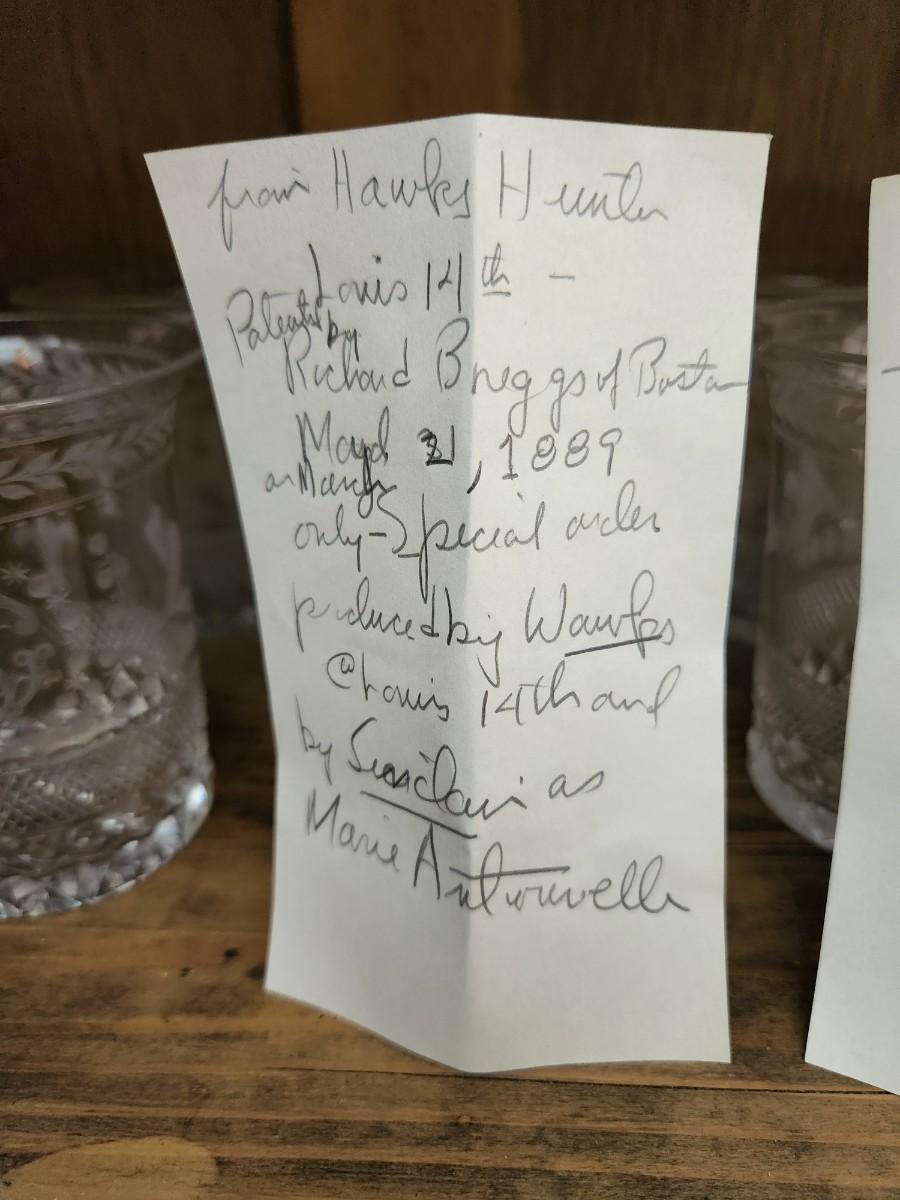 from Hawkes Hunter
Louis 14th -
Patented by
Richard Breggs of Boston
May 21, 1889
or March
only - Special order
produced by Hawkes
@ Louis 14th and
by Sinclair as
Marie Antoinette